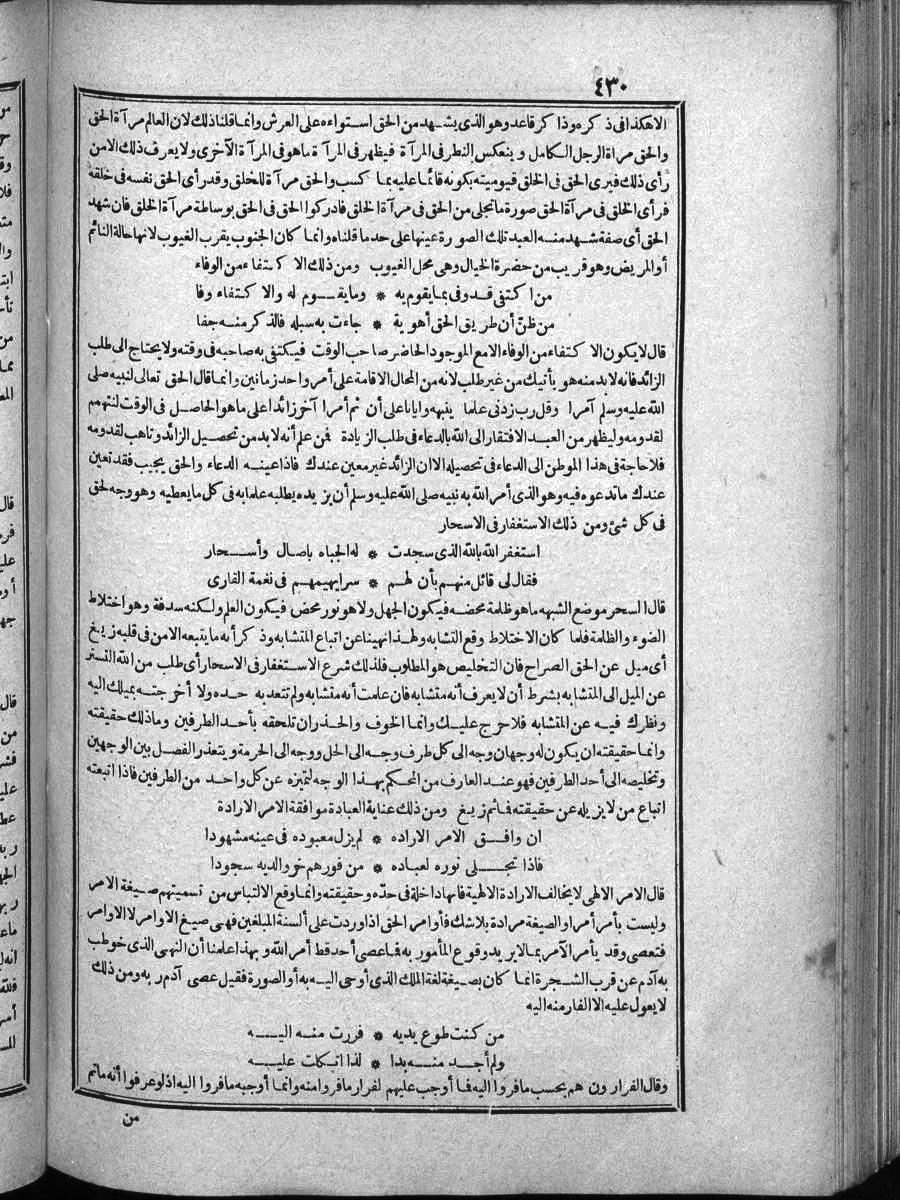 ٤٣٠
الا هكذا في ذكره وذا كر قاعد وهو الذى يشهد من الحق استواءه على العرش وانما قلنا ذلك لان العالم مرآة الحق
والحق مرآة الرجل الكامل وينعكس النظر فى المرآة فيظهر فى المرآة ماهو فى المرآة الآخرى ولا يعرف ذلك الا من
رأى ذلك فيرى الحق فى الخلق قيوميته بكونه قائما عليه بما كسب والحق مرآة للخلق وقد رأى الحق نفسه فى خلقه
فرأى الخلق فى مرآة الحق صورة ماتجلى من الحق فى مرآة الخلق فادركوا الحق فى الحق بوساطة مرآة الخلق فان شهد
الحق أى صفة شهد منه العبد تلك الصورة عينها على حد ما قلناه وانما كان الجنوب بقرب الغيوب لانها حالة النائم
أو المريض وهو قريب من حضرة الخيال وهى محل الغيوب ومن ذلك الا كتفاء من الوفاء
من اكتفى قد وفى بما يقوم به * وما يقوم له والاكتفاء وفا
من ظنّ أن طريق الحق أهوية * جاءت به سبله فالذكر منه جفا
قال لا يكون الاكتفاء من الوفاء الامع الموجود الحاضر صاحب الوقت فيكتفى به صاحبه فى وقته ولا يحتاج الى طلب
الزائد فانه لابد منه هو يأتيك من غير طلب لانه من المحال الاقامة على أمر واحد زمانين وانما قال الحق تعالى لنبيه صلى
الله عليه وسلم آمرا وقل رب زدنى علما ينبهه وايانا على أن ثم أمرا آخر زائدا على ما هو الحاصل فى الوقت لنتهمم
لقدومه وليظهر من العبد الافتقار الى الله بالدعاء فى طلب الزيادة فمن علم أنه لابد من تحصيل الزائد وتاهب لقدومه
فلا حاجة فى هذا الموطن الى الدعاء فى تحصيله الا ان الزائد غير معين عندك فاذا عينه الدعاء والحق يجيب فقد تعين
عندك ما تدعوه فيه وهو الذى أمر الله به نبيه صلى الله عليه وسلم أن يزيده يطلبه علما به فى كل ما يعطيه وهو وجه لحق
فى كل شئ ومن ذلك الاستغفار فى الاسحار
استغفر الله بالله الذى سجدت * له الجباه باصال وأسحار
فقال لى قائل منهم بأن لهم * سرا يهيمهم فى نغمة القارى
قال السحر موضع الشبهه ماهو ظلمة محضه فيكون الجهل ولا هو نور محض فيكون العلم ولكنه سدفة وهو اختلاط
الضوء والظلمة فلما كان الاختلاط وقع التشابه ولهذا نهينا عن اتباع المتشابه وذ كر أنه ما يتبعه الا من فى قلبه زيغ
أى ميل عن الحق الصراح فان التخليص هو المطلوب فلذلك شرع الاستغفار فى الاسحار أى طلب من الله التستر
عن الميل الى المتشابه بشرط أن لا يعرف أنه متشابه فان علمت أنه متشابه ولم تتعد به حده ولا أخرجته بميلك اليه
ونظرك فيه عن المتشابه فلا حرج عليك وانما الخوف والحذر ان تلحقه بأحد الطرفين وما ذلك حقيقته
وانما حقيقته ان يكون له وجهان وجه الى كل طرف وجه الى الحل ووجه الى الحرمة ويتعذر الفصل بين الوجهين
وتخليصه الى أحد الطرفين فهو عند العارف من المحكم بهذا الوجه لتميزه عن كل واحد من الطرفين فاذا اتبعته
اتباع من لا يزيله عن حقيقته فما ثم زيغ ومن ذلك عناية العبادة موافقة الامر الارادة
ان وافق الامر الاراده * لم يزل معبوده فى عينه مشهودا
فاذا تجلى نوره لعباده * من فورهم خروا لديه سجودا
قال الامر الالهى لا يخالف الارادة الالهية فانها داخلة فى حدّه وحقيقته وانما وقع الالتباس من تسميتهم صيغة الامر
وليست بأمر أمرا والصيغة مرادة بلا شك فأوامر الحق اذا وردت على ألسنة المبلغين فهى صيغ الاوامر لا الاوامر
فتعصى وقد يأمر الآمر بما لا يريد وقوع المأمور به فما عصى أحد قط أمر الله وبهذا علمنا أن النهى الذى خوطب
به آدم عن قرب الشجرة انما كان بصيغة لغة الملك الذى أوحى اليه به أو الصورة فقيل عصى آدم ربه ومن ذلك
لا يعول عليه الا الفار منه اليه
من كنت طوع يديه * فررت منه اليه
ولم أجد منه بدا * لذا اتكلت عليه
وقال الفرارون هم بحسب ما فروا اليه فما أوجب عليهم لفرار ما فروا منه وانما أوجبه ما فروا اليه اذ لو عرفوا أنه ما ثم
من